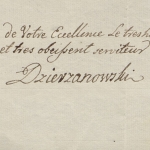 de Votre Excellence Le tresh
et tres obeissent serviteur
Dzierzanowski